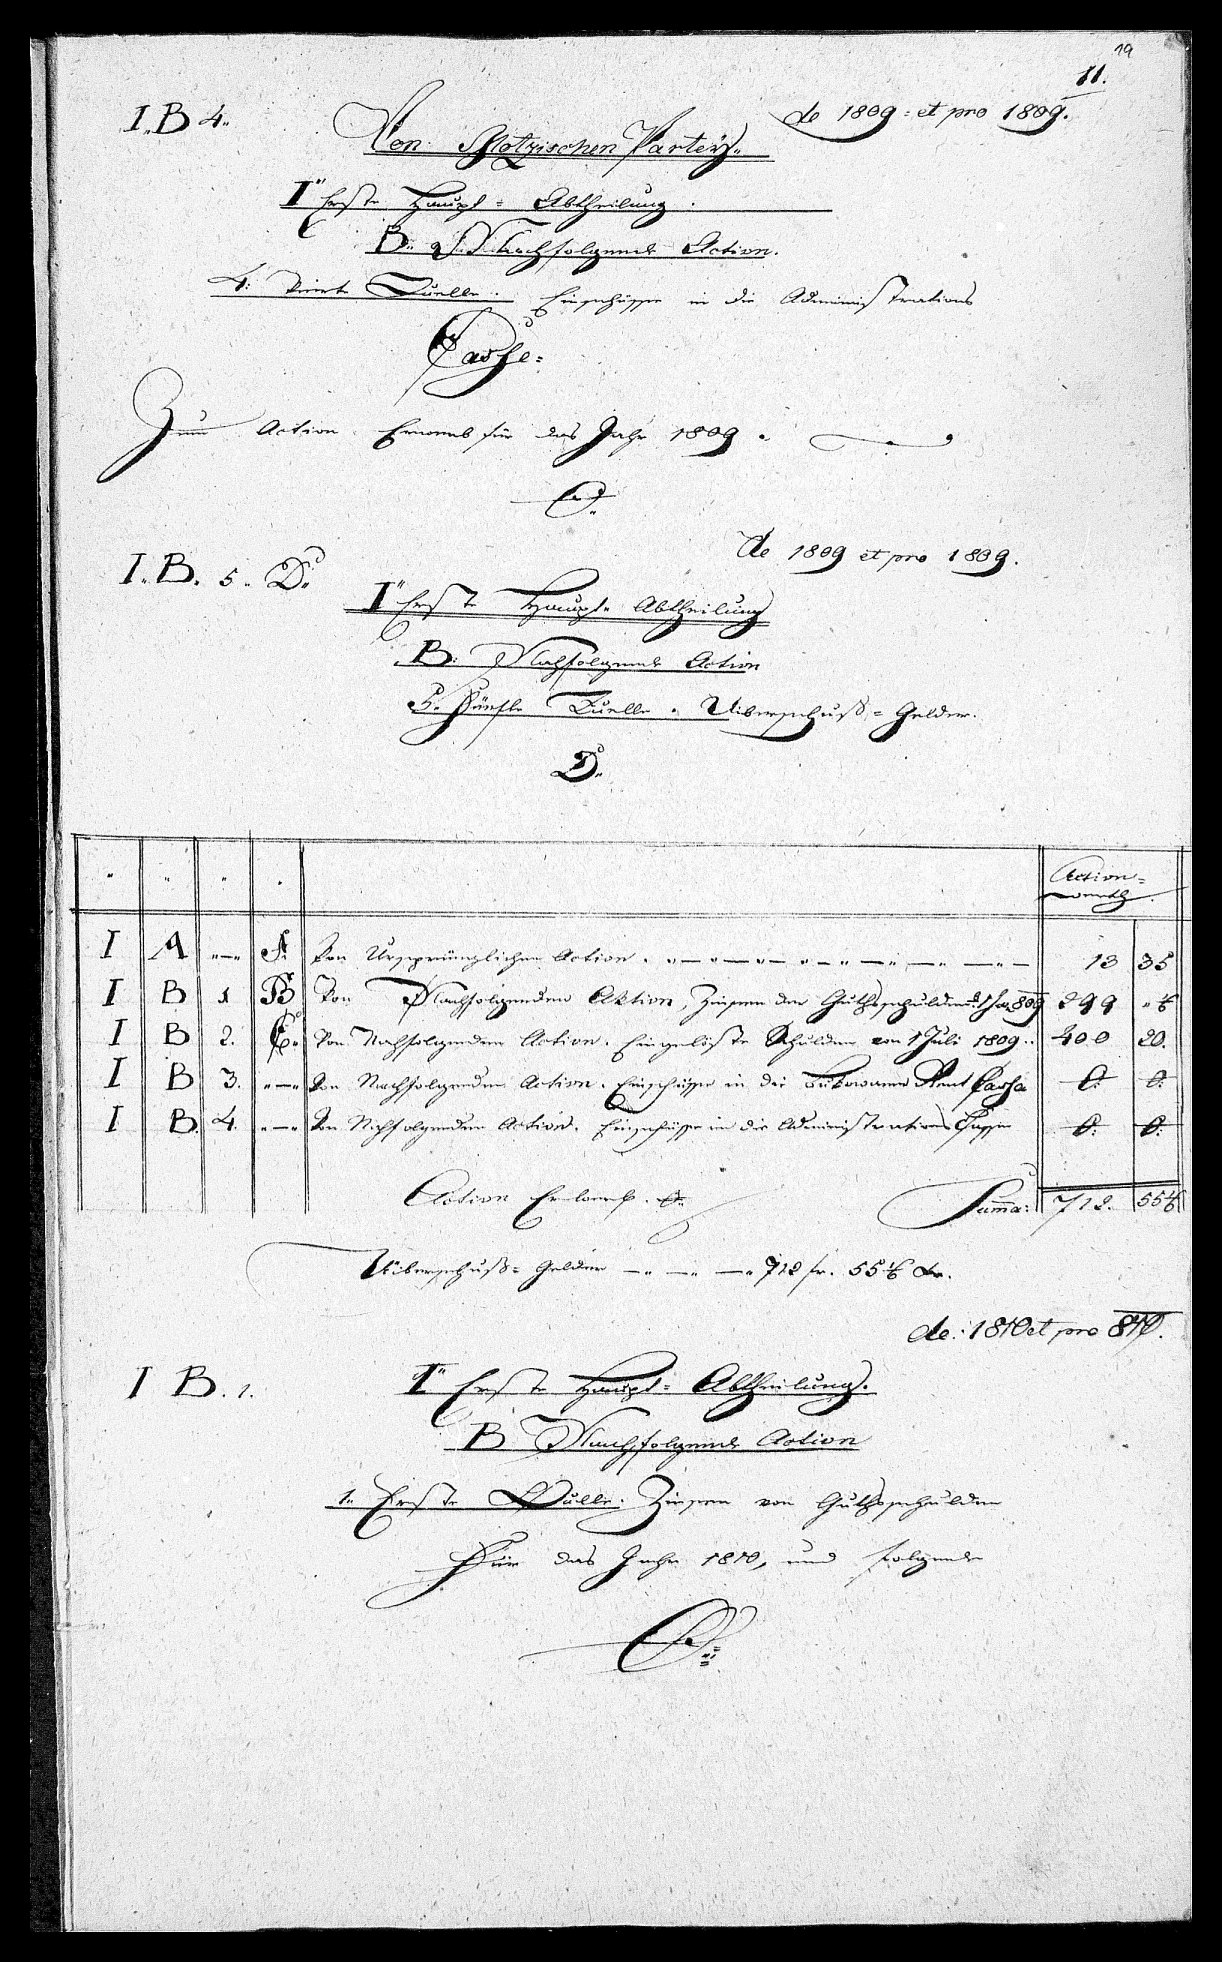 19
11.
I. B 4. de 1809 : et pro 1809.
Von Partey.
I Erste Haupt = Abtheilung.
B. Nachfolgende Action.
4. Vierte Quelle. Einschüsse in die Administrations
Casse:
Zum Action Erwerb für das Jahr 1809.
0.
de 1809 et pro 1809.
I. B. 5. D.
I Erste Haupt = Abtheilung
B. Nachfolgende Action
5. Fünfte Quelle. Uiberschuß = Gelder.
D.
Action =
werth
I A "—" A Von Ursprünglichen Action. 13 35
I B 1 B Von Nachfolgenden Aktion, Zinsen der Guthsschulden 809 299 "
I B 2. C. Von Nachfolgenden Action. Eingelößte Schulden von 1 Juli 1809. 400 20.
I B 3. "—" Von Nachfolgenden Action. Einschüsse in die Rent Cassa 0. 0.
I B. 4. "—" Von Nachfolgenden Action. Einschüsse in die Administrations Casse 0. 0.
Action Erwerb. 0. Suma: 712. 55
Uiberschuß = Gelder — " — " — " 712 fr. 55 Xr.
de. 1810 et pro 810.
I B. 1. I Erste Haupt = Abtheilung.
B Nachfolgende Action
1. Erste Quelle. Zinsen von Guthsschulden
Für das Jahr 1810, und folgende
0.